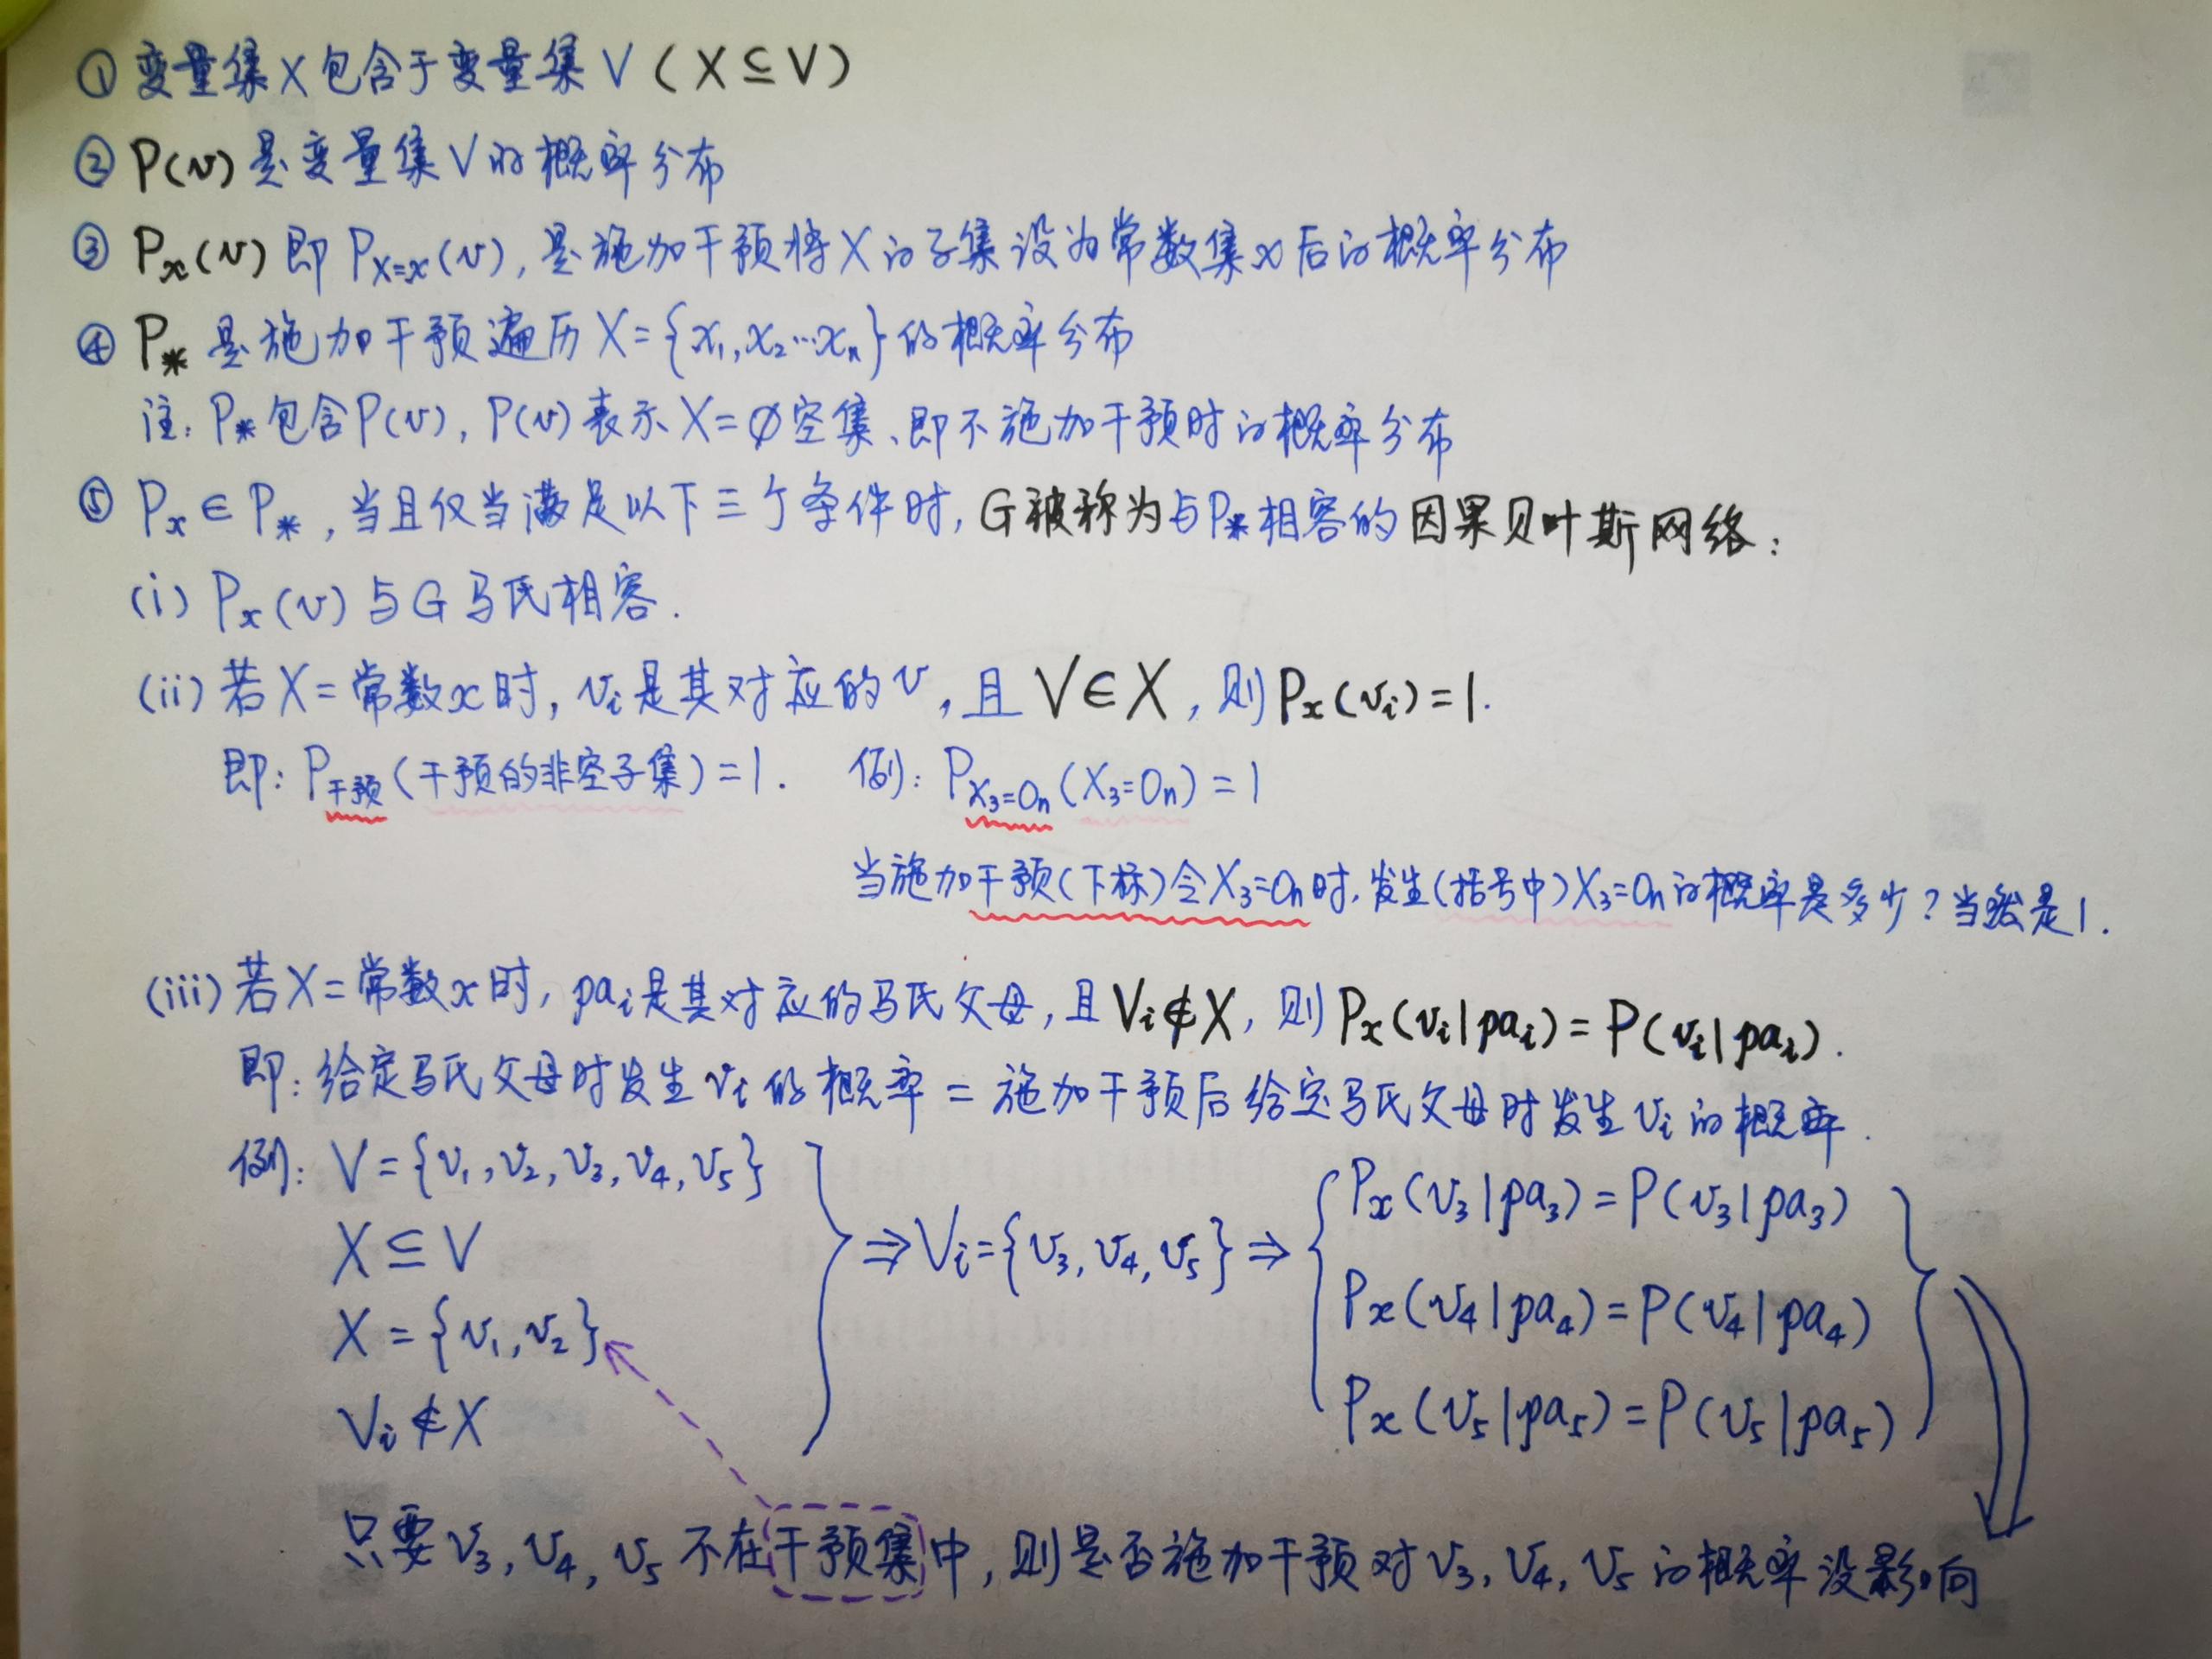 ① 变量集X包含于变量集V（X⊆V）
② P(v)是变量集V的概率分布
③ Pₓ(v)即P_{X=x}(v)，是施加干预将X的子集设为常数集x后的概率分布
④ P_*是施加干预遍历X={x₁,x₂…xₙ}的概率分布
注：P_*包含P(v)，P(v)表示X=∅空集、即不施加干预时的概率分布
⑤ Pₓ∈P_*，当且仅当满足以下三个条件时，G被称为与P_*相容的因果贝叶斯网络：
(i) Pₓ(v)与G马氏相容.
(ii) 若X=常数x时，vᵢ是其对应的v，且V∈X，则Pₓ(vᵢ)=1.
即：P_{干预}(干预的非空子集)=1. 例：P_{X₃=On}(X₃=On)=1
当施加干预(下标)令X₃=On时，发生(括号中)X₃=On的概率是多少？当然是1.
(iii) 若X=常数x时，paᵢ是其对应的马氏父母，且Vᵢ∉X，则Pₓ(vᵢ|paᵢ)=P(vᵢ|paᵢ).
即：给定马氏父母时发生vᵢ的概率=施加干预后给定马氏父母时发生vᵢ的概率.
例：V={v₁,v₂,v₃,v₄,v₅}
X⊆V
X={v₁,v₂}
Vᵢ∉X
⇒Vᵢ={v₃,v₄,v₅}⇒
Pₓ(v₃|pa₃)=P(v₃|pa₃)
Pₓ(v₄|pa₄)=P(v₄|pa₄)
Pₓ(v₅|pa₅)=P(v₅|pa₅)
只要v₃,v₄,v₅不在干预集中，则是否施加干预对v₃,v₄,v₅的概率没影响